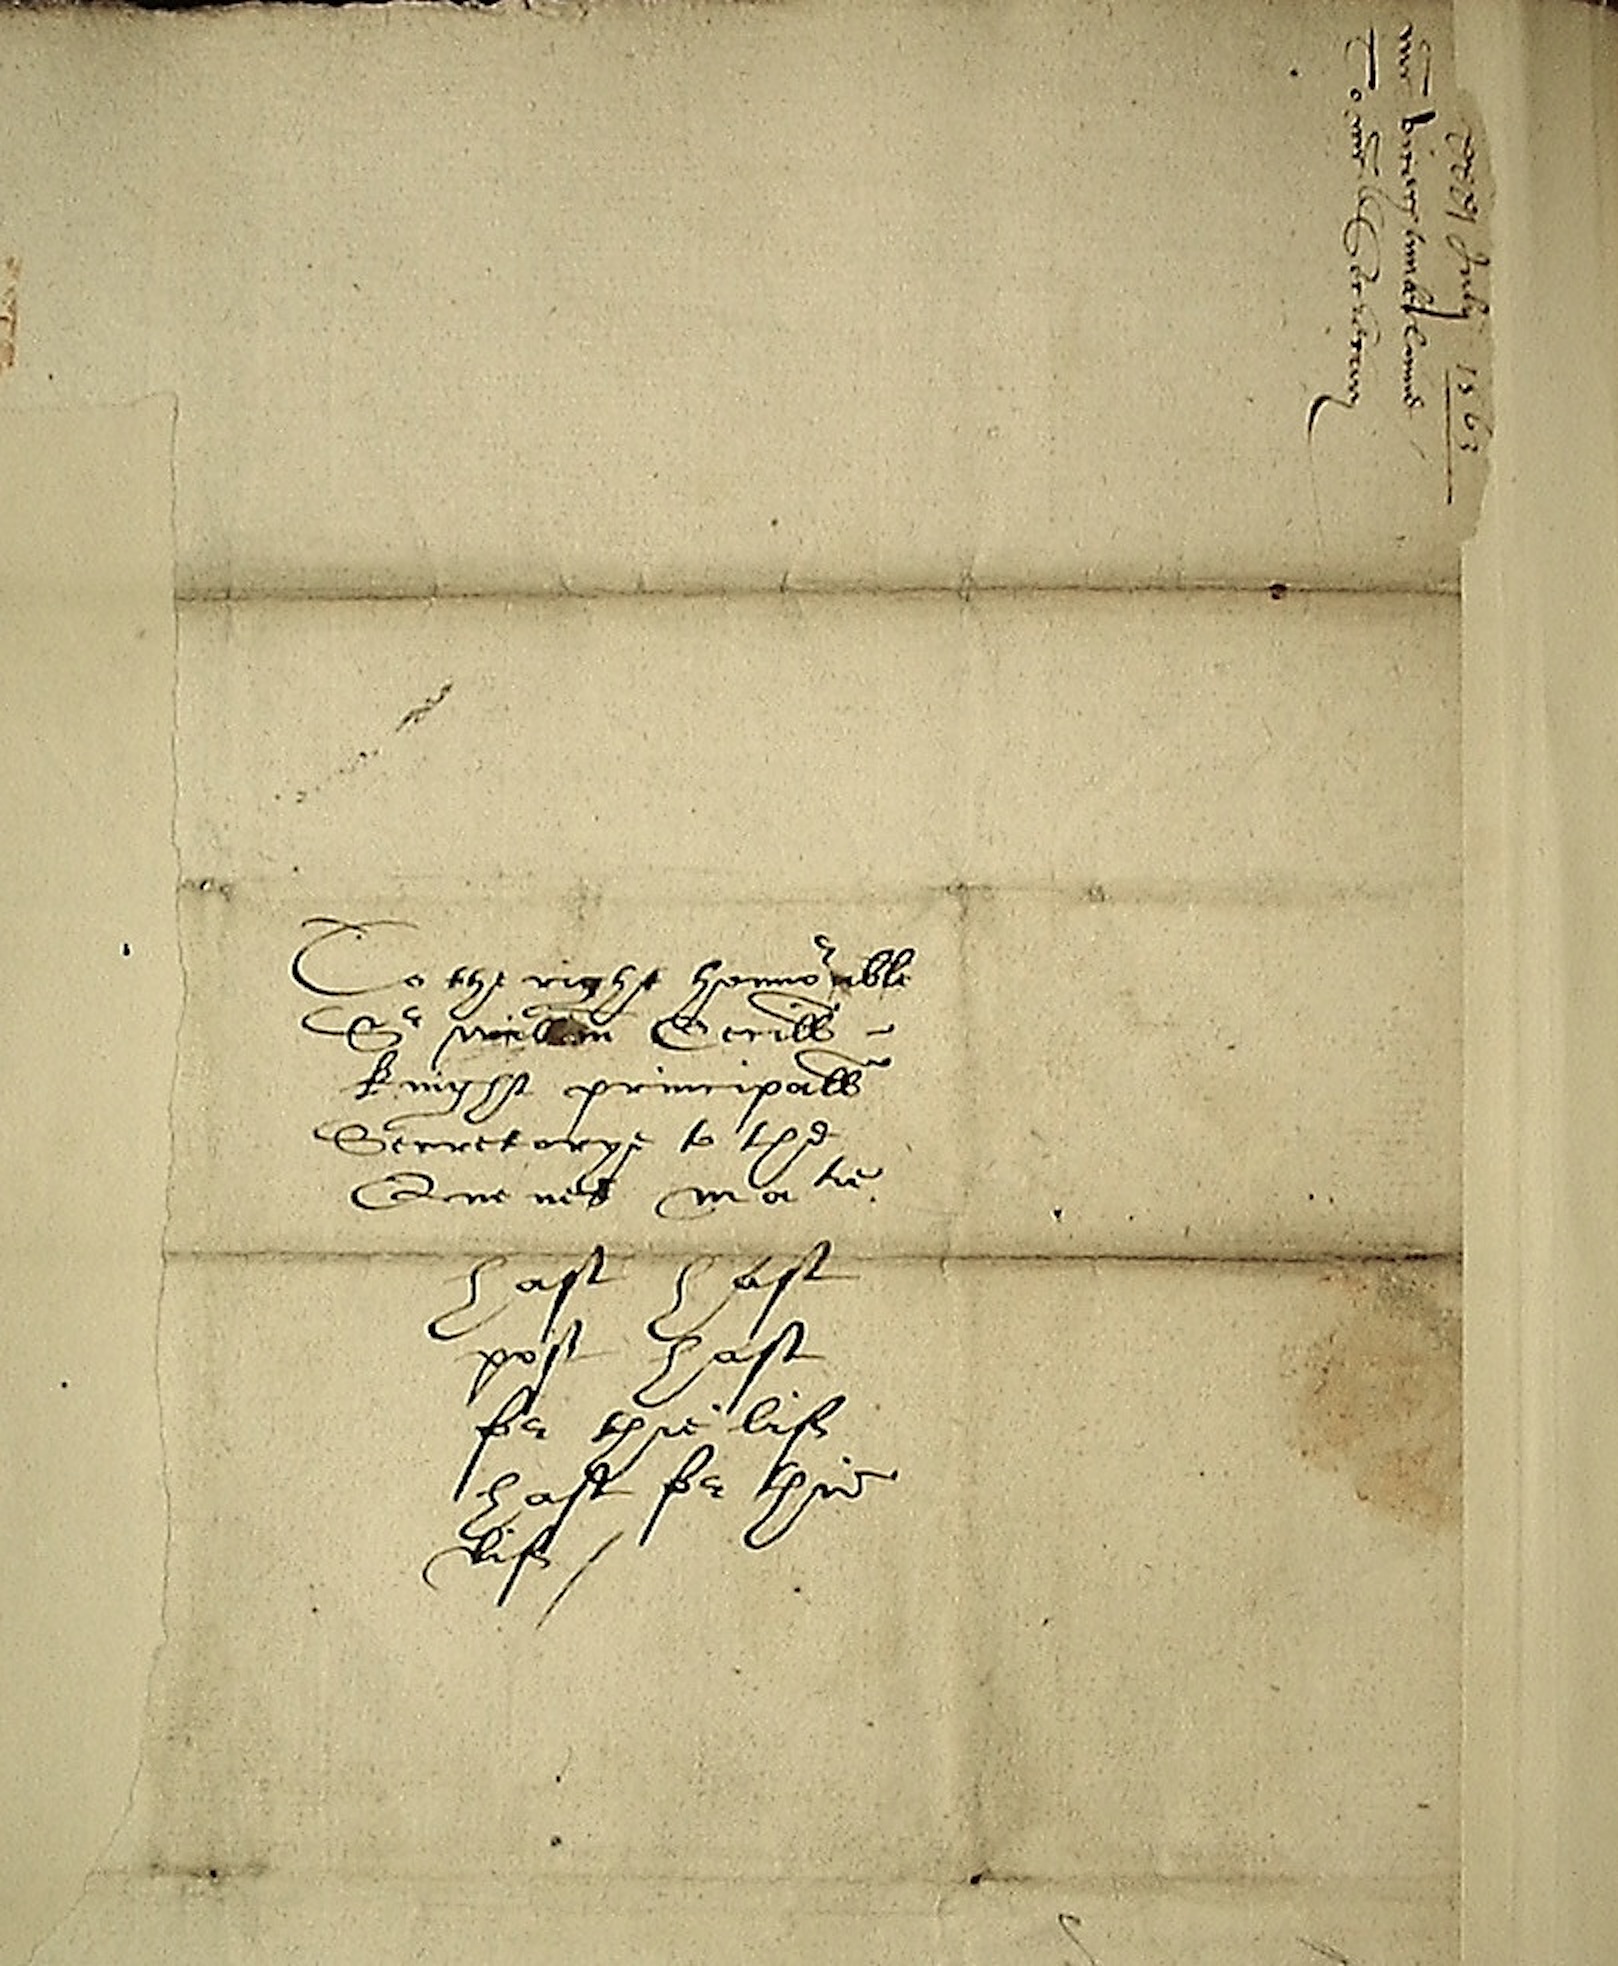 To the right honnorable
Sr william Cecill
knight principall
Secretorye to the
Quenes matie.
hast hast
post hast
for thie liff
hast for thie
liff /
July 1563
mr
To mr Secretary